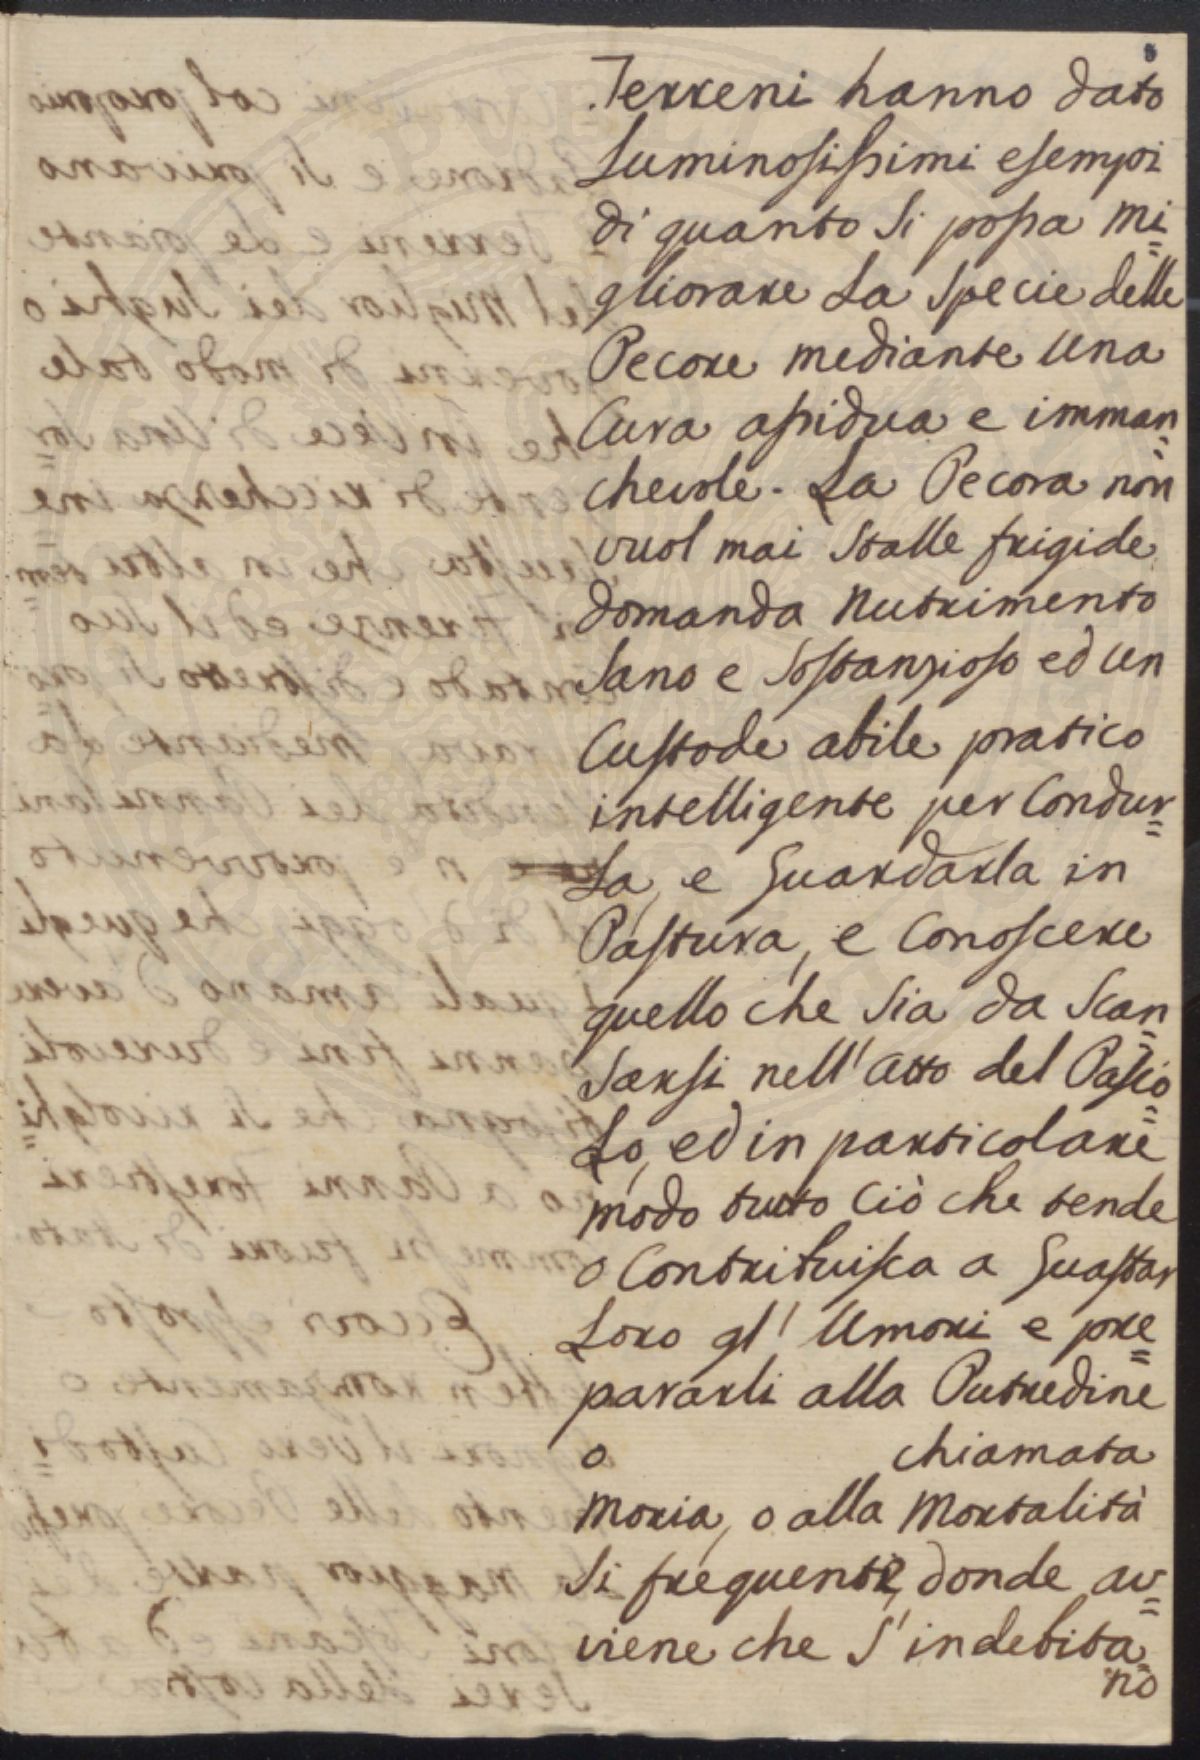 Terreni hanno dato
Luminosissimi esempi
di quanto si possa mi=
gliorare La Specie delle
Pecore mediante Una
Cura assidua e imman=
chevole. La Pecora non
vuol mai Stalle frigide
domanda Nutrimento
Sano e Sostanzioso ed un
Custode abile pratico
intelligente per Condur=
La, e Guardarla in
Pastura, e Conoscere
quello che Sia da Scan=
sarsi nell' atto del Pasco=
Lo, ed in particolare
modo tutto Ciò che tende
o Contribuisca a Guastar
Loro gl' Umori e pre=
pararli alla Putredine
o chiamata
Moria, o alla Mortalità
Si frequente, donde av=
viene che S' indebita=
no